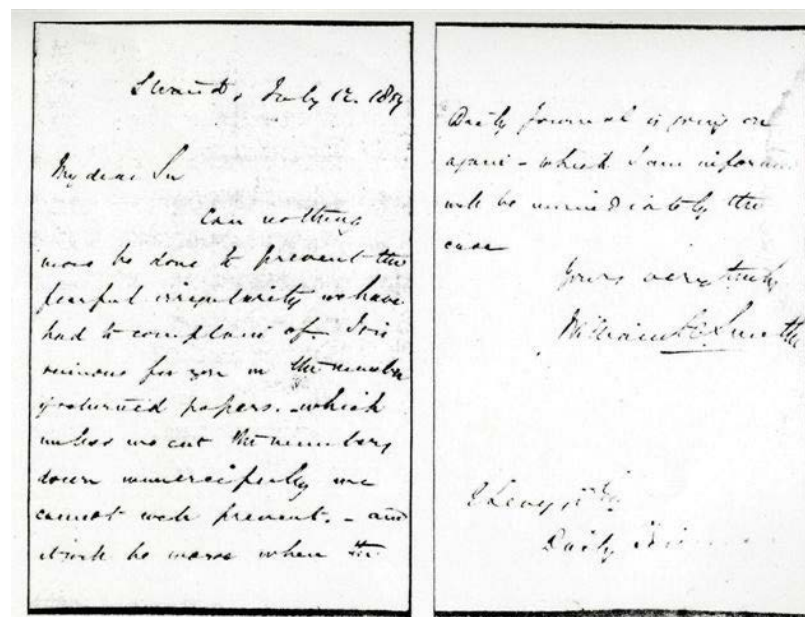 Strand, July 12. 18
My dear Sir
Can nothing
more be done to prevent the
fearful irregularity we have
had to complain of. It is
ruinous for you in the number
of returned papers. which
unless we cut the numbers
down unmercifully we
cannot well prevent. - and
it will be worse when the
Daily Journal is going on
again - which I am informed
will be immediately the
case
Yours very truly
William H. Smith
J Levy Esq
Daily